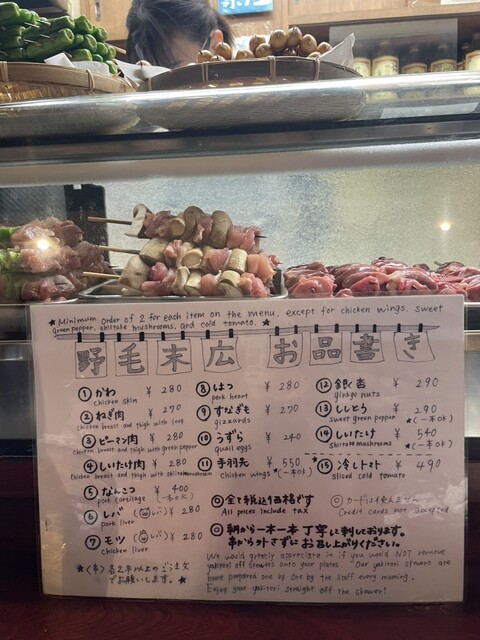 ★ Minimum Order of 2 for each item on the menu, except for chicken wings, sweet
green pepper, shiitake mushrooms, and cold tomato. ★
野毛末広 お品書き
① かわ ¥ 280
chicken skin
② ねぎ肉 ¥ 270
chicken breast and thigh with leeg
③ ピーマン肉 ¥ 280
chicken breast and thigh with green pepper
④ しいたけ肉 ¥ 280
chicken breast and thigh with shiitake mushroom
⑤ なんこつ ¥ 400
pork cartilage (一本OK)
⑥ レバ (レバ) ¥ 280
pork liver
⑦ モツ (レバ) ¥ 280
chicken liver
★(串)各2本以上のご注文
でお願いします。★
⑧ はつ ¥ 280
pork heart
⑨ すなぎも ¥ 270
gizzards
⑩ うずら ¥ 240
quail eggs
⑪ 手羽先 ¥ 550
chicken wings ★(一本OK)
⑫ 銀杏 ¥ 290
ginkgo nuts
⑬ ししとう ¥ 290
sweet green pepper ★(一本OK)
⑭ しいたけ ¥ 540
shiitake mushrooms ★(一本OK)
⑮ 冷しトマト ¥ 490
sliced cold tomato
◎ 全て税込み価格です
All prices include tax
◎ カードは使えません
Credit cards not accepted
◎ 朝から一本一本丁寧に刺しております。
串から外さずにお召し上がりください。
We would greatly appreciate it if you would NOT remove
yakitori off skewers onto your plates. Our yakitori skewers are
hand prepared one by one by the staff every morning.
Enjoy your yakitori straight off the skewer!